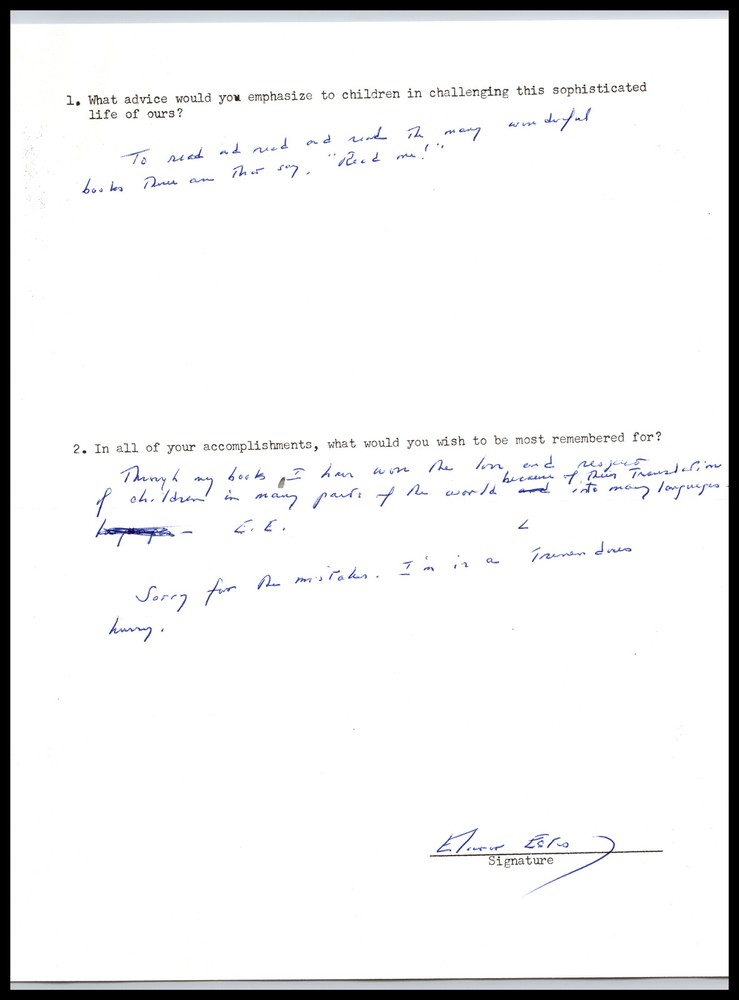 1. What advice would you emphasize to children in challenging this sophisticated
life of ours?
To read and read and read the many wonderful
books there are that say, "Read me!"
2. In all of your accomplishments, what would you wish to be most remembered for?
Through my books, I have won the love and respect
of children in many parts of the world because of their translation into many languages -
E.E.
Sorry for the mistakes. I'm in a tremendous
hurry.
Eleanor Estes
Signature